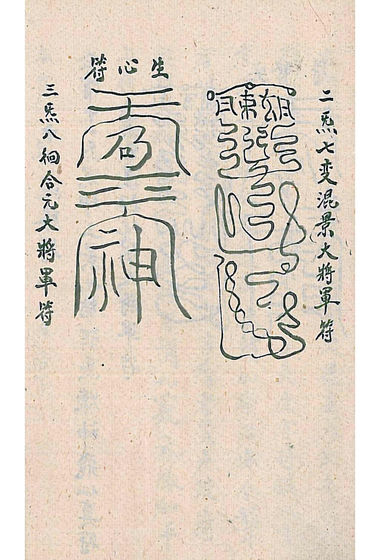 二炁七变混景大將軍符
生心符
神
三炁八徊合元大將軍符